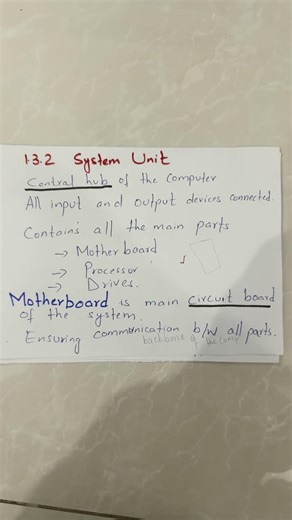 1.3.2 System Unit
Central hub of the computer
All input and output devices connected.
Contains all the main parts
→ Motherboard
→ Processor
→ Drives.
Motherboard is main circuit board
of the system.
Ensuring communication b/w all parts.
backbone of the comp